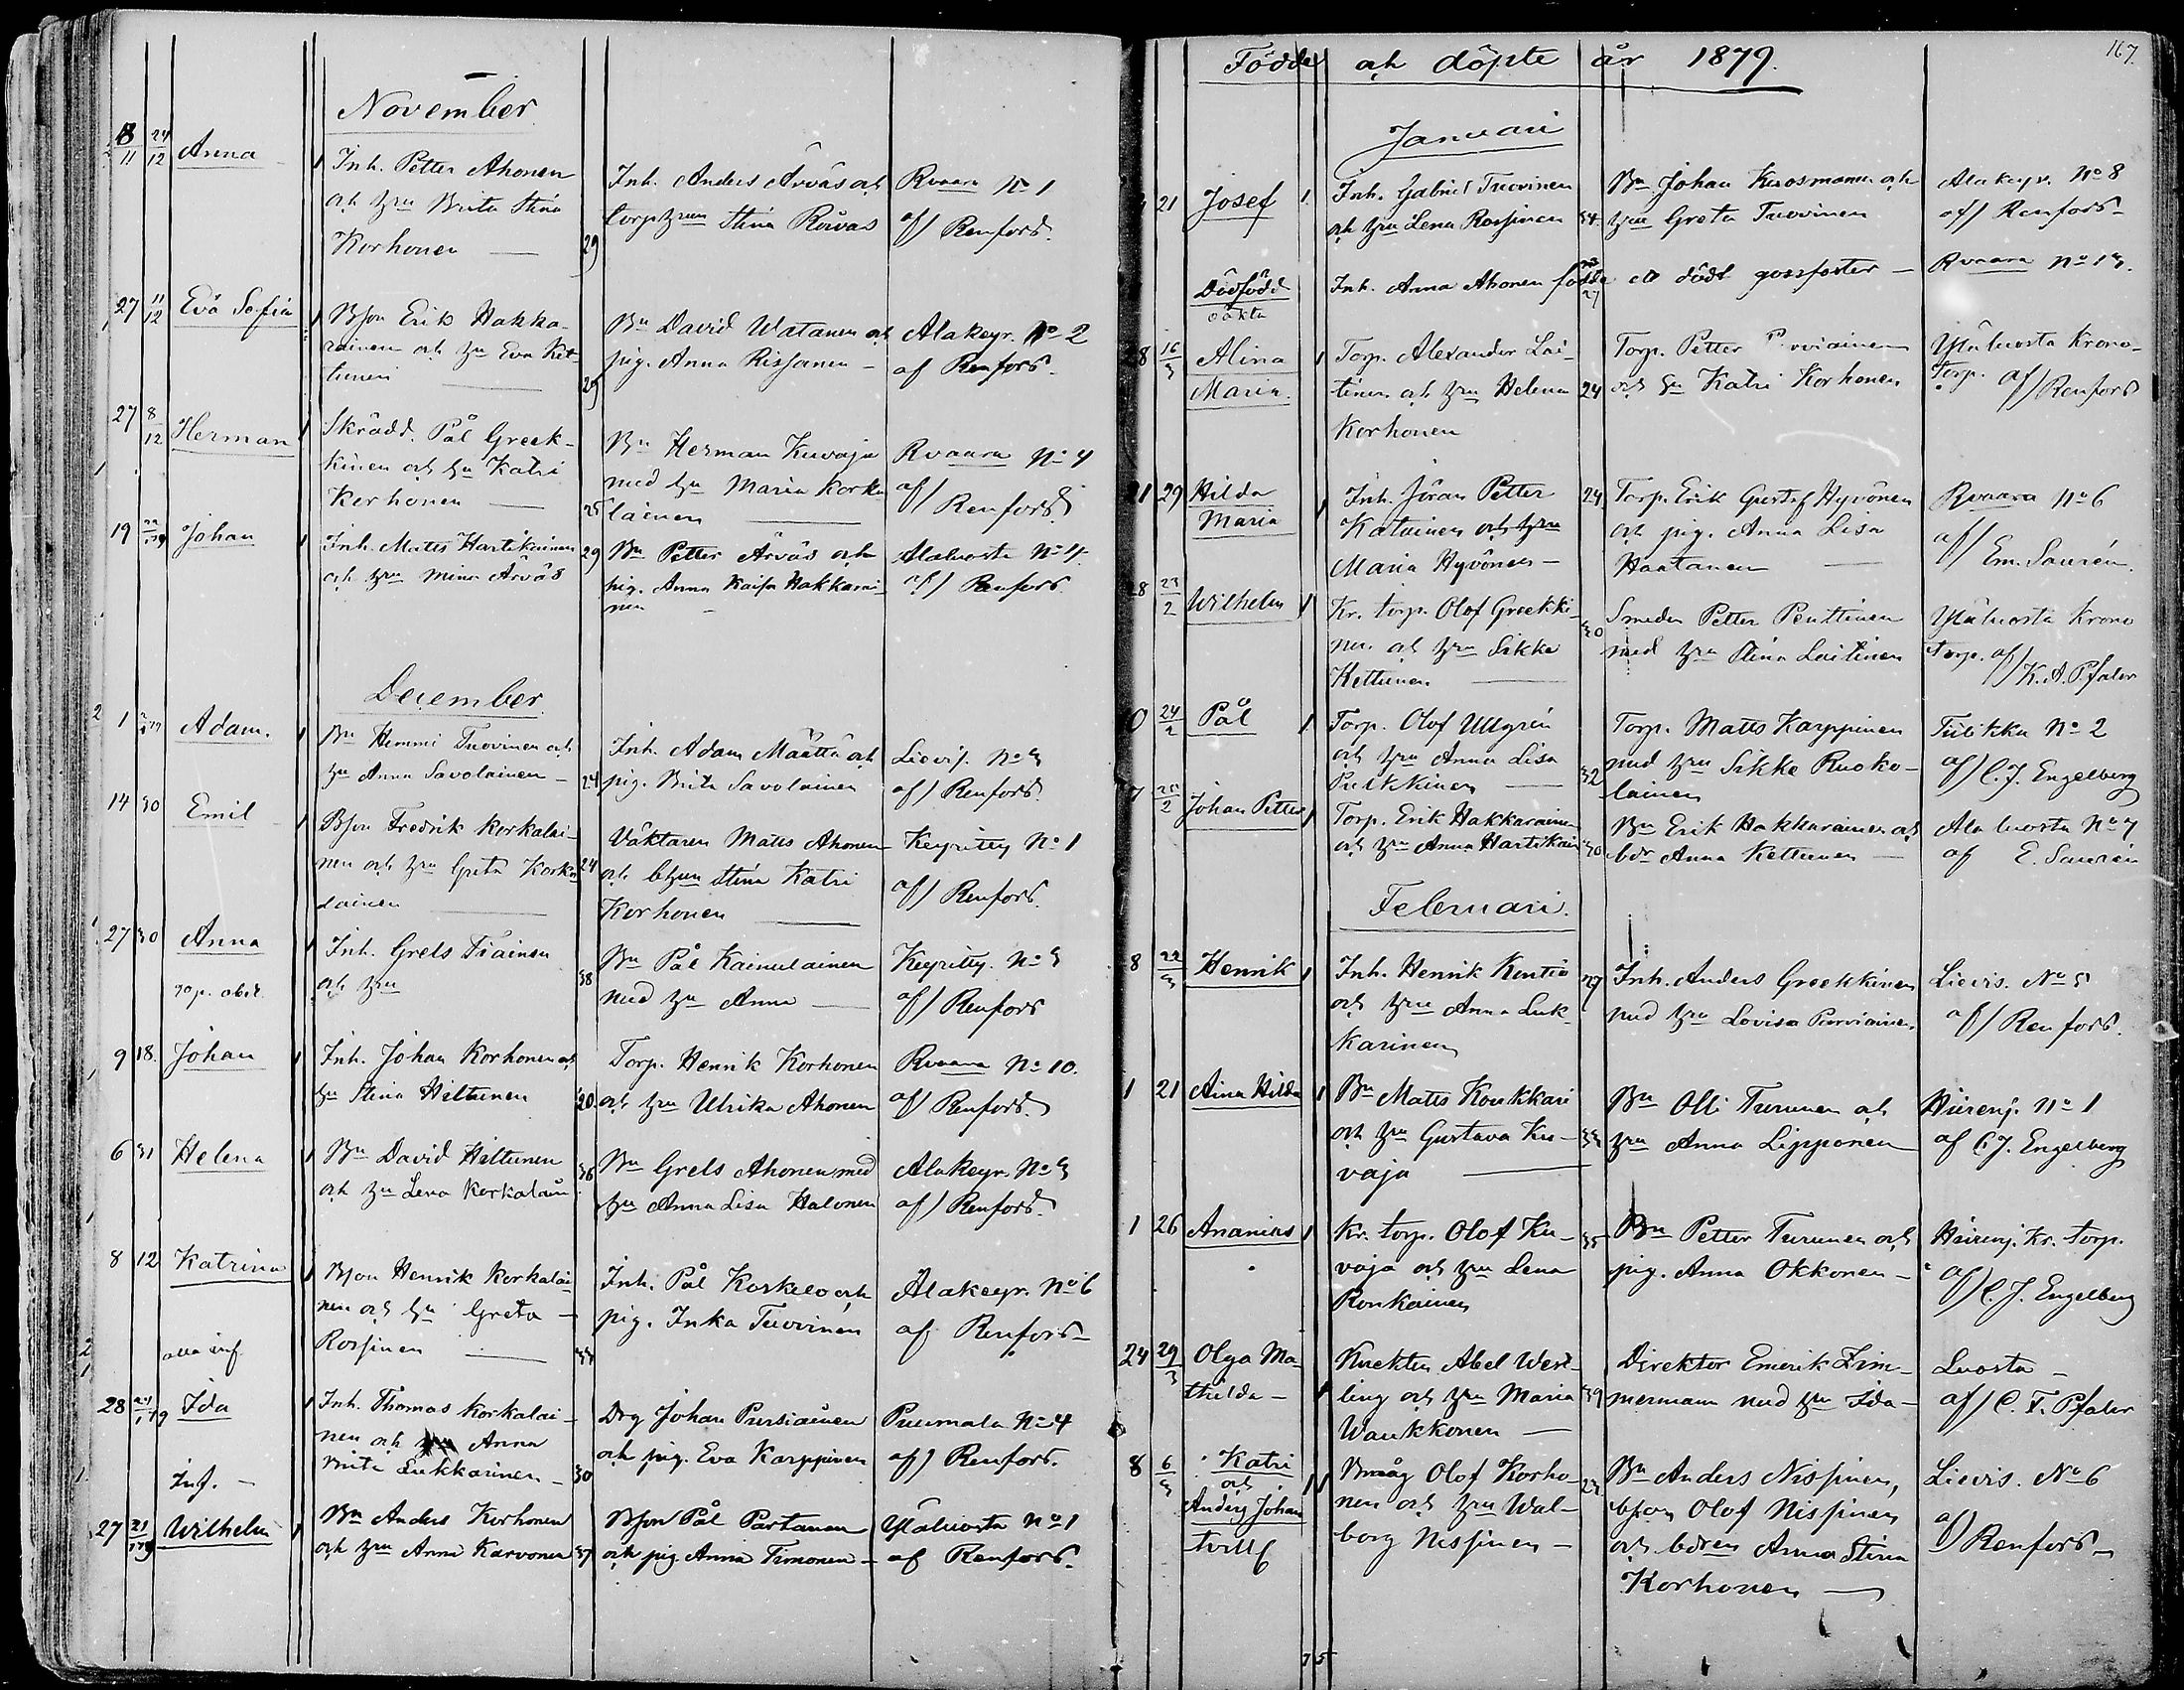 November
18/11 24/12 Anna 1 Inh. Petter Ahonen
och hu Brita Stina
Korhonen 29
Inh. Anders Ärväs och
torp.hun Stina Rävas
Rvaara No 1
af) Renfors.
27 11/12 Eva Sofia 1 Bson Erik Hakka-
rainen och hu Eva Ket-
tunen 29
Bn David Watanen och
pig. Anna Rissanen -
Alakeyr. No 2
af Renfors.
27 8/12 Herman 1 Skrädd. Pål Greek-
kinen och hu Katri
Korhonen 25
Bn Herman Kuvaja
med hu Maria Korka
lainen
Rvaara No 4
af) Renfors
19 Johan 1 Inh. Matts Hartikainen 29
och hru Mina Ärväs
Bn Petter Ärväs och
pig. Anna Kaisa Hakkarai-
nen
Alaluosta No 4.
af) Renfors
December
1 Adam. 1 Bn Hemmi Tuovinen och
hu Anna Savolainen - 24
Inh. Adam Määttä och
pig. Brita Savolainen
Lievis. No 3
af) Renfors.
14 30 Emil 1 Bson Fredrik Korkalai-
nen och hru Greta Korka 24
lainen
Väktaren Matts Ahonen
och bhun Stina Katri
Korhonen
Keyritty No 1
af) Renfors.
27 30 Anna 1 Inh. Grels Tiainen
och hru 38
Bn Pål Kainulainen
med hu Anna
Keyritty. No 3
af) Renfors
9 18. Johan 1 Inh. Johan Korhonen och
hu Stina Hiltunen 20.
Torp. Henrik Korhonen
och hru Ulrika Ahonen
Rvaara No 10.
af) Renfors.
6 31 Helena 1 Bn David Hiltunen 36
och hru Lena Korkalain
Bn Grels Ahonen med
hu Anna Lisa Halonen
Alakeyr. No 3
af) Renfors.
8 12 Katrina 1 Bson Henrik Korkalai-
nen och hu Greta -
Rossinen 33
Inh. Pål Koskelo och
pig. Inka Tuovinen
Alakeyr. No 6
af Renfors-
28 Ida 1 Inh. Thomas Korkalai-
nen och Anna
Brita Lukkarinen - 30
Drg Johan Pursiainen
och pig. Eva Karppinen
Puumala No 4
af) Renfors.
Inf. -
27 Wilhelm 1 Bn Anders Korhonen
och hru Anna Karvonen 37
Bson Pål Partanen
och pig Anna Timonen -
Yläluosta No 1
af Renfors.
167.
Födde och döpte år 1879.
Januari
21 Josef 1 Inh. Gabriel Tuovinen
och hru Lena Rossinen 34.
Bn. Johan Kuosmanen och
hru Greta Tuovinen
Alakeyr. No 8
af) Renfors-
Dödfödd
oäkta
Inh. Anna Ahonen födde ett dödt gossfoster - 27
Rvaara No 13.
28 16/3 Alina 1
Maria.
Torp. Alexander Lai-
tinen och hru Helena 24
Korhonen
Torp. Petter
och hu Katri Korhonen
Yläluosta Krono-
torp. af) Renfors
21 29 Hilda 1
Maria
Inh. Jöran Petter 24
Katainen och hru
Maria Hyvönen -
Torp. Erik Gustaf Hyvönen
och pig. Anna Lisa
Haatanen
Rvaara No 6
af) Em. Saurén.
28 23/2 Wilhelm 1 Kr. torp. Olof Greekki-
nen och hru Sikke
Kettunen 30
Smeden Petter Penttinen
med hru Stina Laitinen
Yläluosta Krono
torp. af) K. A. Pfaler
0 24/2 Pål 1 Torp. Olof Ullgrén
och hru Anna Lisa
Pulkkinen 32
Torp. Matts Karppinen
med hru Sikke Ruoko-
lainen
Tiikka No 2
af) C. J. Engelberg
7 Johan Petter 1 Torp. Erik Hakkarainen
och hru Anna Hartikain 30
Bn Erik Hakkarainen och
bdr Anna Kettunen
Ala luosta No 7
af E. Saurén
Februari.
8 22/3 Henrik 1 Inh. Henrik Kontio 27
och hru Anna Luk-
karinen
Inh. Anders Greekkinen
med hru Lovisa Purviainen.
Lievis. No 5
af) Renfors.
1 21 Aina Hilda 1 Bn Matts Koukkari
och hru Gustava Ku- 33
vaja
Bn Olli Turunen och
hru Anna Lipponen
Hiirenj. No 1
af C. J. Engelberg
1 26 Ananias 1 Kr. torp. Olof Ku- 35
vaja och hru Lena
Ronkainen
Bn Petter Turunen och
pig. Anna Okkonen -
Hiirenj. Kr. torp.
af) C. J. Engelberg
24 29/3 Olga Ma-
thilda - 1
Knekten Abel West-
ling och hru Maria 39
Waukkonen
Direktor Emerik Zim-
mermann med hru Ida -
Luosta -
af) C. F. Pfaler
8 6/3 Katri
och
Anders Johan
tvill 11
Bmåg Olof Korho-
nen och hru Wal-
borg Nissinen -
Bn Anders Nissinen,
bson Olof Nissinen
och bdren Anna Stina
Korhonen
Lievis. No 6
af) Renfors -